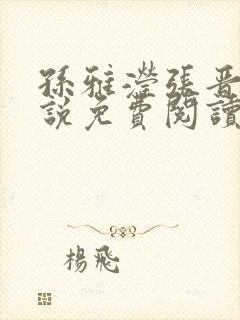 孫雅瀅張晉
說免費閱讀
楊飛